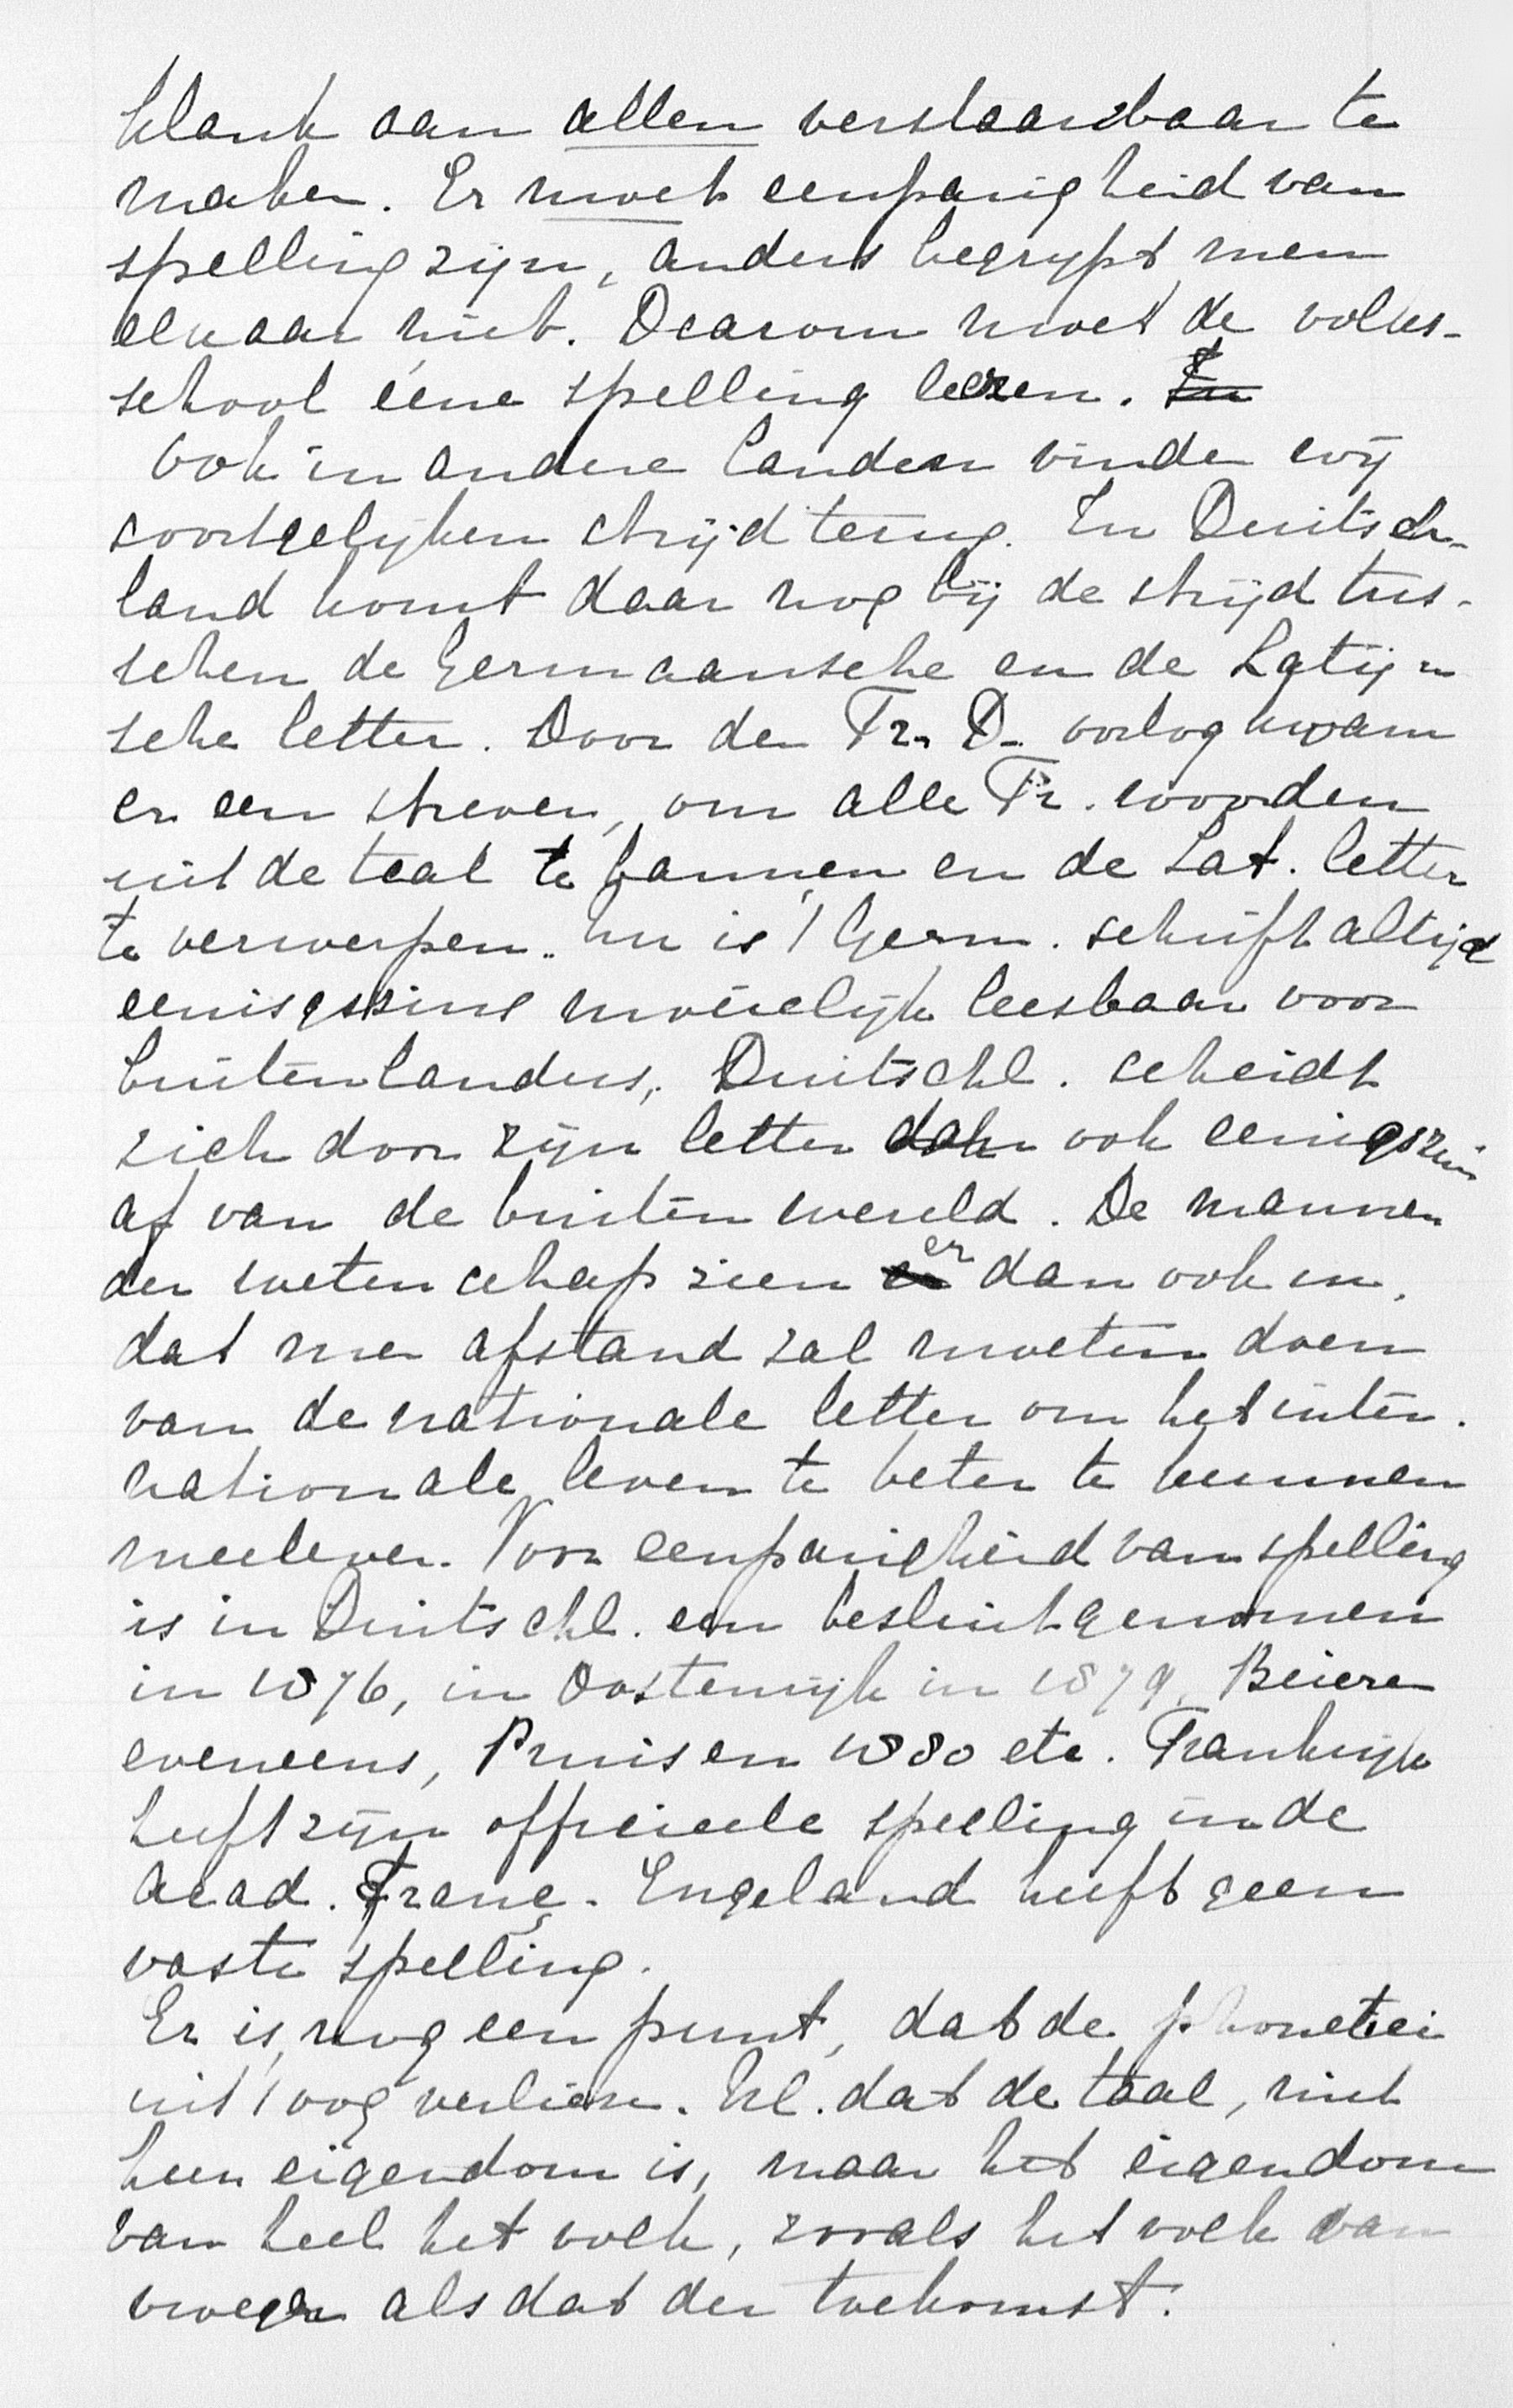 klank aan allen verstaanbaar te
maken. Er moet eenparigheid van
spelling zijn, anders begrypt men
elkaar niet. Daarom moet de volks-
school eéne spelling leeren. In
Ook in andere landen vinden wij
soortgelyken strijd terug. In Duitsch-
land komt daar nog bij de strijd tus-
schen de Germaansche en de Latijn
sche letter. Door den Fr. D. oorlog kwam
er een streven, om alle Fr. woorden
uit de taal te bannen en de Lat. letter
te verwerpen. Nu is 't Germ. schrift altijd
eenigszins moeielijk leesbaar voor
buitenlanders, Duitschl. scheidt
zich door zijn letter dah ook eenigszins
af van de buitenwereld. De mannen
der wetenschap zien er dan ook in,
dat men afstand zal moeten doen
van de nationale letter om het inter-
nationale leven te beter te kunnen
meeleven. Voor eenparigheid van spelling
is in Duitschl. een besluit genomen
in 1876, in Oostenrijk in 1879, Beieren
eveneens, Pruisen 1880 etc. Frankrijk
heeft zijn officieele spelling in de
Acad. Franç. Engeland heeft geen
vaste spelling.
Er is nog een punt, dat de phonetici
uit 't oog verliezen. Nl. dat de taal, niet
hun eigendom is, maar het eigendom
van heel het volk, zooals het volk van
vroeger als dat der toekomst.